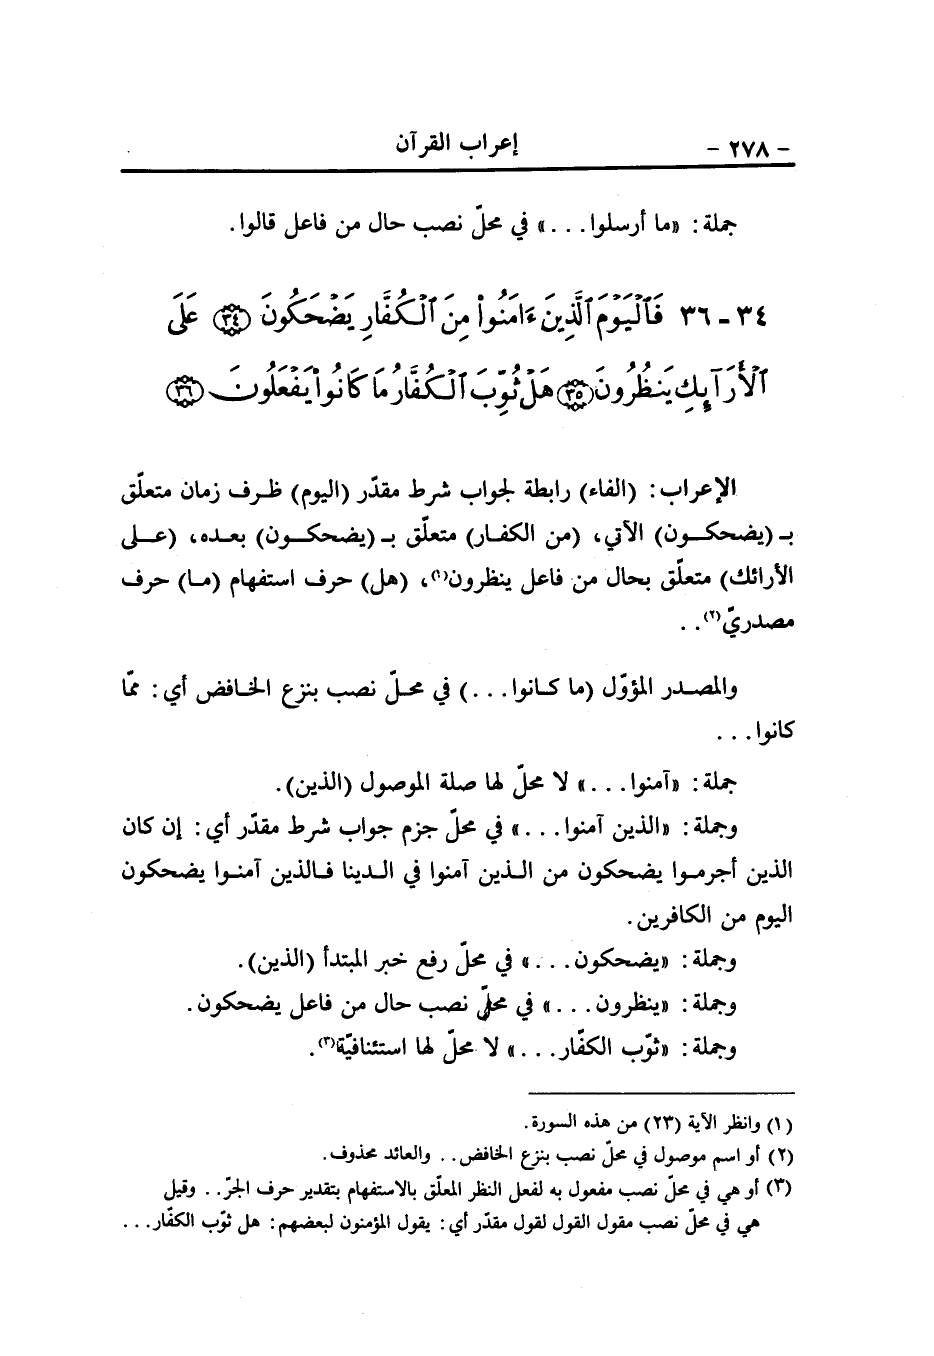 - ٢٧٨ -
إعراب القرآن
جملة: «ما أرسلوا...» في محلّ نصب حال من فاعل قالوا.
٣٤ - ٣٦ فَٱلْيَوْمَ ٱلَّذِينَ ءَامَنُوا۟ مِنَ ٱلْكُفَّارِ يَضْحَكُونَ ٣٤ عَلَى
ٱلْأَرَآئِكِ يَنظُرُونَ ٣٥ هَلْ ثُوِّبَ ٱلْكُفَّارُ مَا كَانُوا۟ يَفْعَلُونَ ٣٦
الإعراب: (الفاء) رابطة لجواب شرط مقدّر (اليوم) ظرف زمان متعلّق
بـ (يضحكون) الآتي، (من الكفار) متعلّق بـ (يضحكون) بعده، (على
الأرائك) متعلّق بحال من فاعل ينظرون(١)، (هل) حرف استفهام (ما) حرف
مصدريّ(٢)..
والمصدر المؤوّل (ما كانوا...) في محلّ نصب بنزع الخافض أي: ممّا
كانوا...
جملة: «آمنوا...» لا محلّ لها صلة الموصول (الذين).
وجملة: «الذين آمنوا...» في محلّ جزم جواب شرط مقدّر أي: إن كان
الذين أجرموا يضحكون من الذين آمنوا في الدينا فالذين آمنوا يضحكون
اليوم من الكافرين.
وجملة: «يضحكون...» في محلّ رفع خبر المبتدأ (الذين).
وجملة: «ينظرون...» في محلّ نصب حال من فاعل يضحكون.
وجملة: «ثوّب الكفّار...» لا محلّ لها استئنافيّة(٣).
(١) وانظر الآية (٢٣) من هذه السورة.
(٢) أو اسم موصول في محلّ نصب بنزع الخافض.. والعائد محذوف.
(٣) أو هي في محلّ نصب مفعول به لفعل النظر المعلّق بالاستفهام بتقدير حرف الجرّ.. وقيل
هي في محلّ نصب مقول القول لقول مقدّر أي: يقول المؤمنون لبعضهم: هل ثوّب الكفّار...